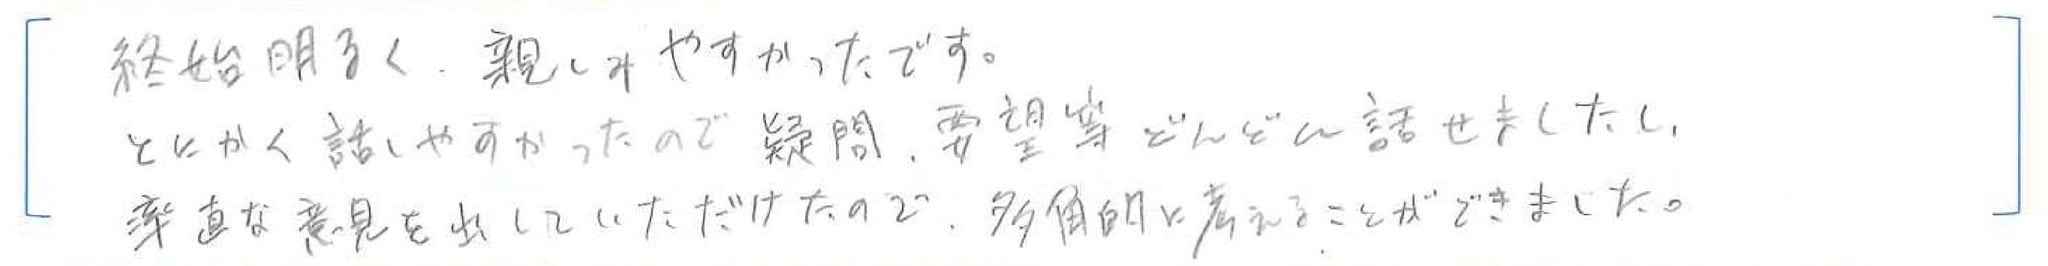 終始明るく、親しみやすかったです。
とにかく話しやすかったので疑問、要望等どんどん話せましたし、
率直な意見を出していただけたので、多角的に考えることができました。